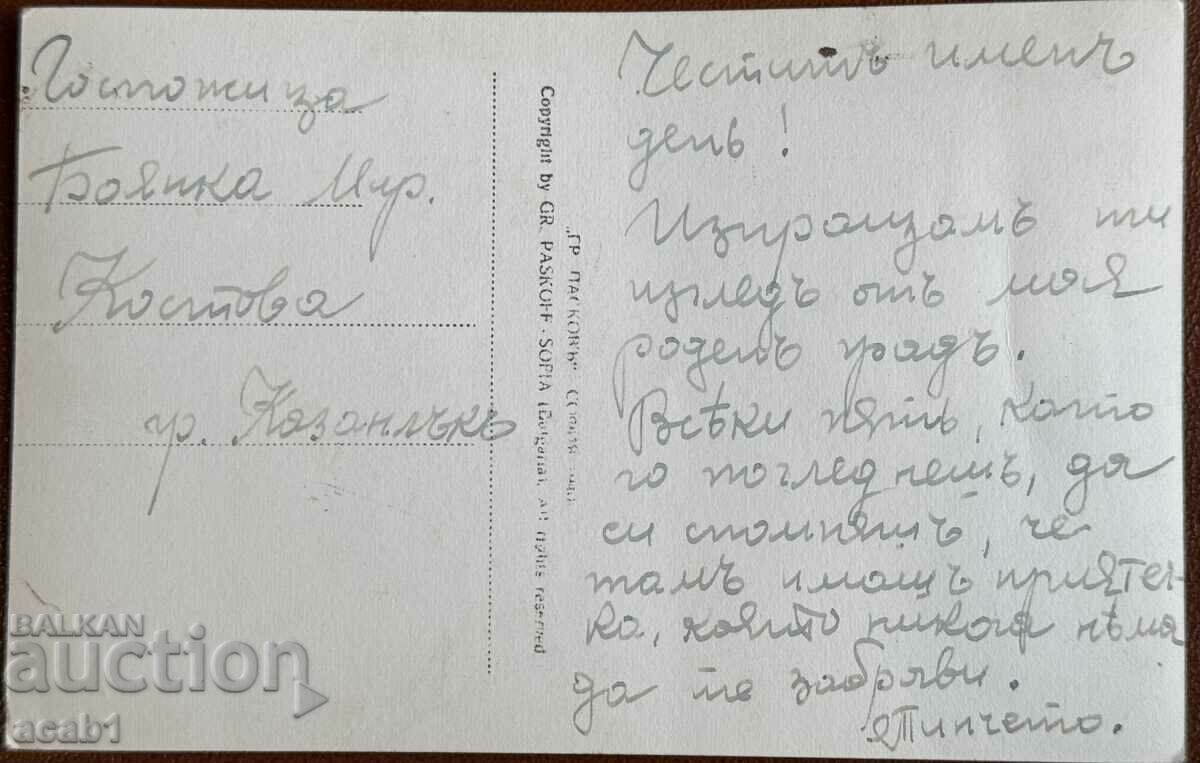 Госпожица
Боянка Мир.
Костова
гр. Казанлъкъ
Copyright by GR. PASKOFF - SOFIA (Bulgaria). All rights reserved
„ГР. ПАСКОВЪ“ СОФИЯ
Честитъ имень
день!
Изпращамъ ти
изгледъ отъ моя
роденъ градъ.
Всѣки пѫть, като
го погледнешъ, да
си спомняшъ, че
тамъ имашъ приятел-
ка, която никога нѣма
да те забрави.
Типчето.
BALKAN
auction
acab1